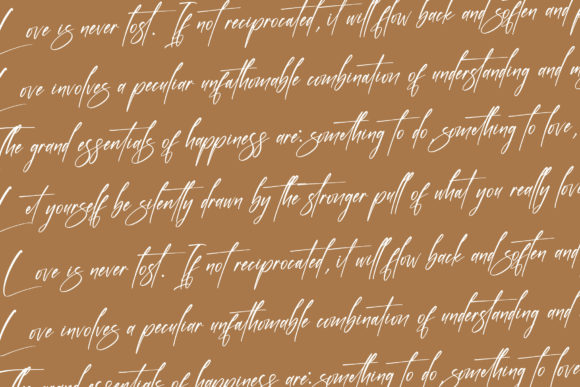 Love is never lost. If not reciprocated, it will flow back and soften and
Love involves a peculiar unfathomable combination of understanding and
The grand essentials of happiness are: something to do, something to love,
Let yourself be silently drawn by the stronger pull of what you really love
Love is never lost. If not reciprocated, it will flow back and soften and
Love involves a peculiar unfathomable combination of understanding and
The grand essentials of happiness are: something to do, something to love